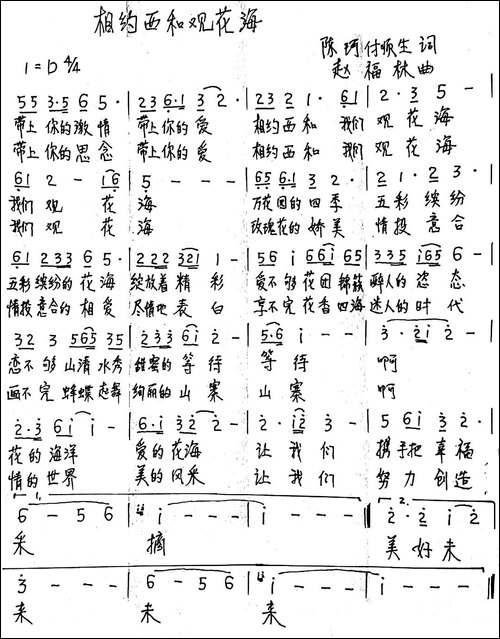 相约西和观花海
陈珂付顺生 词
1=D 4/4
赵福林 曲
55 3·5 6 5· | 23 6·1 3 2· | 23 2 1· 61 | 2·3 5 -
带上你的激情 带上你的爱 相约西和 我们 观花海
带上你的思念 带上你的爱 相约西和 我们 观花海
61 2 - 16 | 5 - - - | 65 6·1 3 2 | 2 1·2 3·
我们 观 花 海 万花园的四季 五彩缤纷
我们 观 花 海 玫瑰花的娇美 情投意合
61 233 6 5· | 222 321 1 - | 56 i 66i 65 | 335 i65 6 -
五彩缤纷的花海 绽放着精彩 爱不够花团锦簇 醉人的姿态
情投意合的相爱 尽情地表白 享不完花香四海 迷人的时代
32 3 565 35 | 2·33 6i 2 - | 5·6 i - - | 3·2i 2 -
恋不够山清水秀 甜蜜的等待 等待 啊
画不完蜂蝶起舞 绚丽的山寨 山寨 啊
2·3 6i i - | 6·i 32 2 - | 2·i2 3 - | 5 6i 3 2·
花的海洋 爱的花海 让我们 携手把幸福
情的世界 美的风采 让我们 努力创造
1.
2.
6 - 5 6 | i - - - | i - - - | 2·2 i 2
采 摘 美好未
3 - - - | 6 - 5 6 | i - - - | i - - -
来 未 来